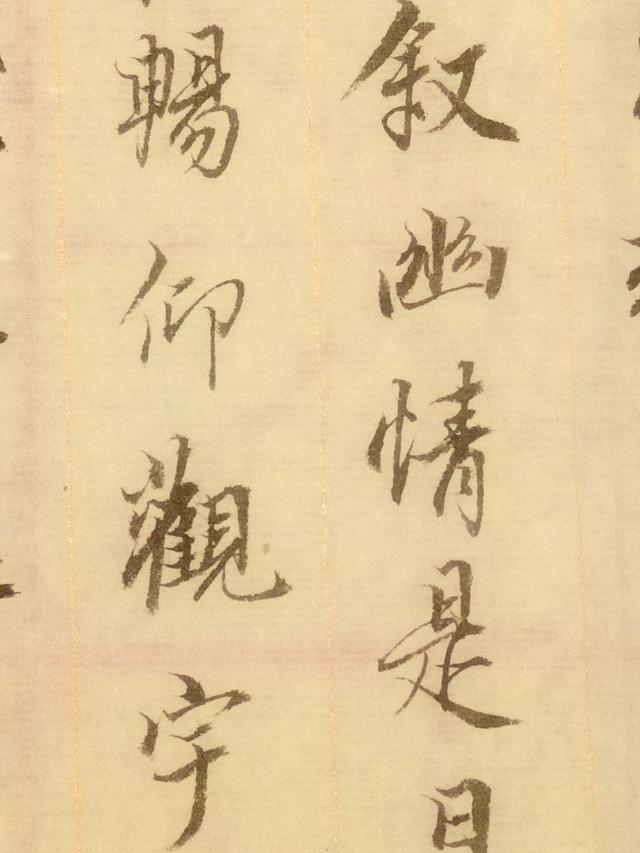 叙幽情是日
暢仰觀宇